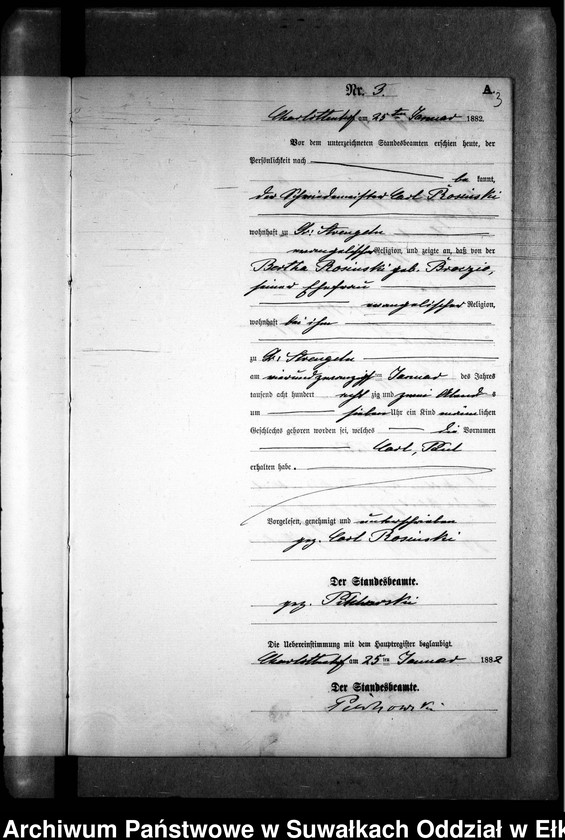 Nr. 3.
A.
3
Charlottenhof am 25ten Januar 1882.
Vor dem unterzeichneten Standesbeamten erschien heute, der
Persönlichkeit nach
be kannt,
der Schmiedemeister Carl Rosinski
wohnhaft zu Gr: Strengeln
evangelischer Religion, und zeigte an, daß von der
Bertha Rosinski geb. Broszio,
seiner Ehefrau
evangelischer Religion,
wohnhaft bei ihm
zu Gr: Strengeln
am vierundzwanzigsten Januar des Jahres
tausend acht hundert acht zig und zwei Abends
um sieben Uhr ein Kind männlichen
Geschlechts geboren worden sei, welches die Vornamen
Carl, Paul
erhalten habe.
Vorgelesen, genehmigt und unterschrieben
gez. Carl Rosinski
Der Standesbeamte.
gez.
Die Uebereinstimmung mit dem Hauptregister beglaubigt.
Charlottenhof am 25ten Januar 1882
Der Standesbeamte.
Archiwum Państwowe w Suwałkach Oddział w Ełk